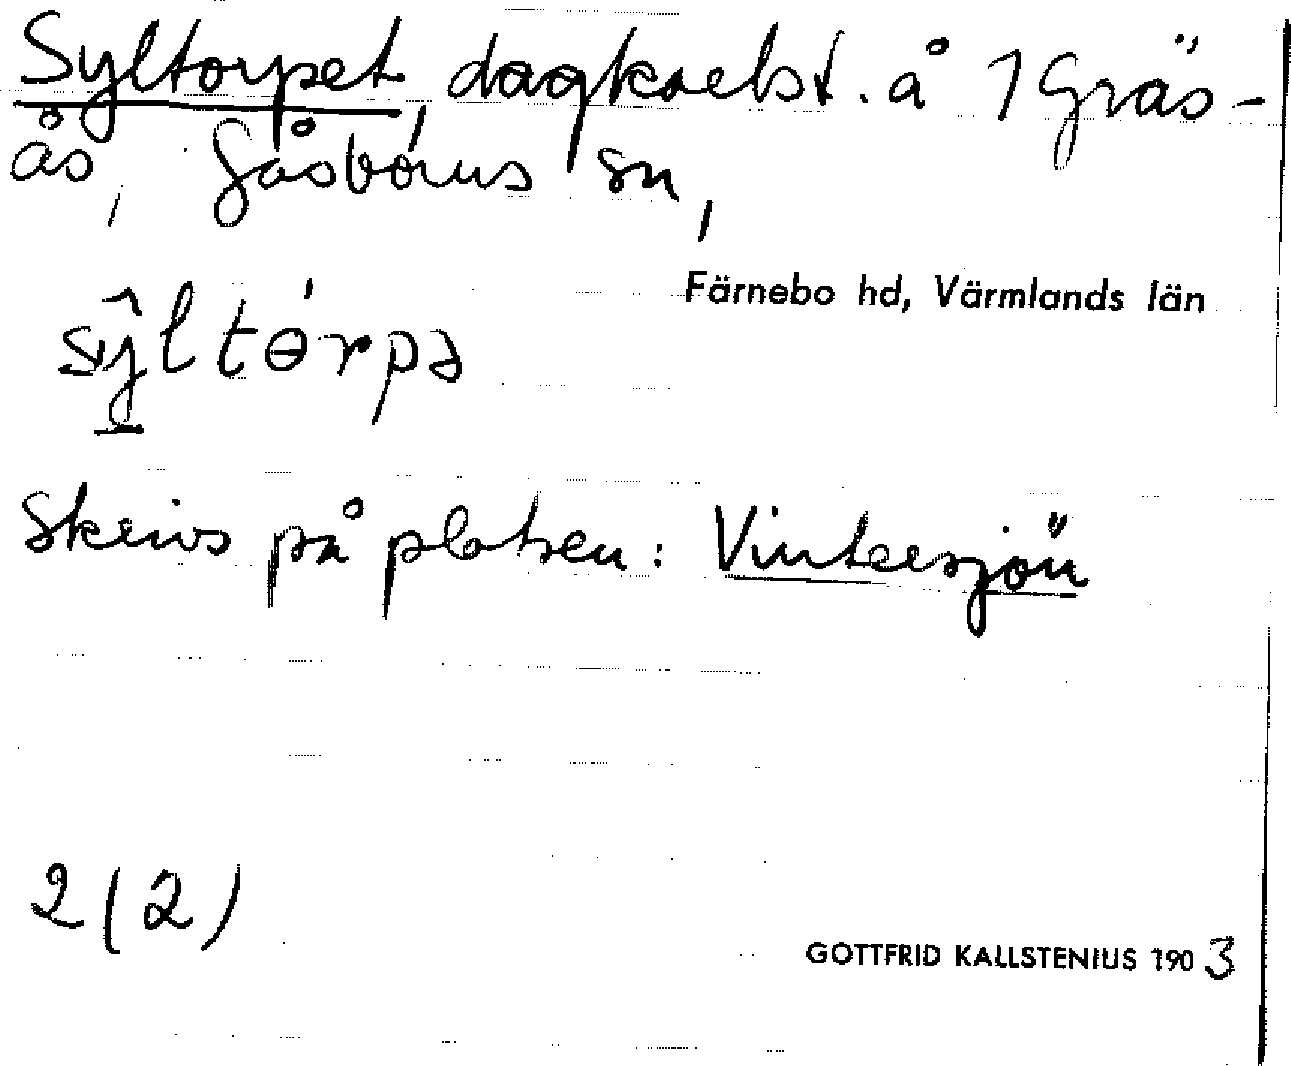 Syltorpet, dagkarlst. å 1 Gräs-
ås, Gåsborns sn,
Färnebo hd, Värmlands län
sŷltɵ́rpə
Skrivs på platsen: Vintersjön
2(2)
GOTTFRID KALLSTENIUS 1903